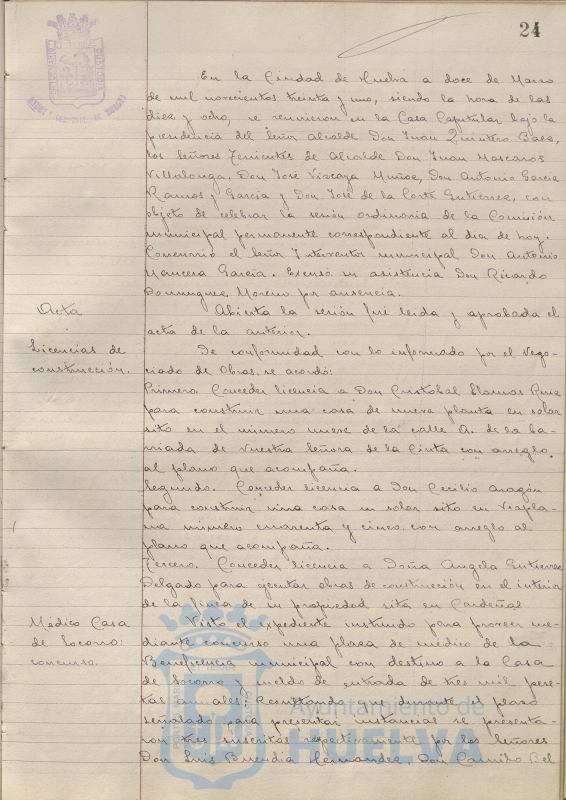 24
En la Ciudad de Huelva a doce de Marzo
de mil novecientos treinta y uno, siendo la hora de las
diez y ocho, se reunieron en la Casa Capitular bajo la
presidencia del Señor Alcalde Don Juan Quintero Baez,
los Señores Tenientes de Alcalde Don Juan Mascaros
Villalonga, Don José Vizcaya Muñoz, Don Antonio Garcia
Ramos y Garcia y Don José de la Corte Gutierrez, con
objeto de celebrar la sesión ordinaria de la Comisión
municipal permanente correspondiente al dia de hoy.
Concurrió el Señor Interventor municipal Don Antonio
Mancera Garcia. Excusó su asistencia Don Ricardo
Dominguez Moreno por ausencia.
Acta
Abierta la sesión fué leida y aprobada el
acta de la anterior.
Licencias de
construcción.
De conformidad con lo informado por el Nego-
ciado de Obras, se acordó:
Primero. Conceder licencia a Don Cristobal Llamas Ruiz
para construir una casa de nueva planta en solar
sito en el numero nueve de la calle A. de la ba-
rriada de Nuestra Señora de la Cinta con arreglo
al plano que acompaña.
Segundo. Conceder licencia a Don Cecilio Aragón
para construir una casa en solar sito en Viapla-
na número cuarenta y cinco con arreglo al
plano que acompaña.
Tercero. Conceder licencia a Doña Angela Gutierrez
Delgado para ejecutar obras de construcción en el interior
de la finca de su propiedad sita en Cardeñas
Médico Casa
de Socorro:
concurso.
Visto el expediente instruido para proveer me-
diante concurso una plaza de médico de la
Beneficencia municipal con destino a la Casa
de Socorro y sueldo de entrada de tres mil pese-
tas anuales; Resultando que durante el plazo
señalado para presentar instancias se presenta-
ron tres suscritas respectivamente por los Señores
Don Luis Buendia Hernandez, Don Camilo Bel
Ayuntamiento de
HUELVA